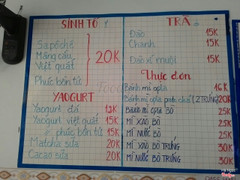 SINH TỐ
Sapôchê
Mãng cầu
Việt quất
Phúc bồn tử
20K
YAOURT
Yaourt đá 12K
Yaourt việt quất 15K
phúc bồn tử 15K
Matcha sữa 20K
Cacao sữa 20K
TRÀ
Đào 15K
Chanh 15K
Đào muối 15K
Thực đơn
Bánh mì opla 16K
Bánh mì opla (2 TRỨNG) 20K
BÒ 25K
MÌ XÀO BÒ 25K
MÌ NƯỚC BÒ 25K
MÌ XÀO BÒ TRỨNG 30K
MÌ NƯỚC BÒ TRỨNG 30K